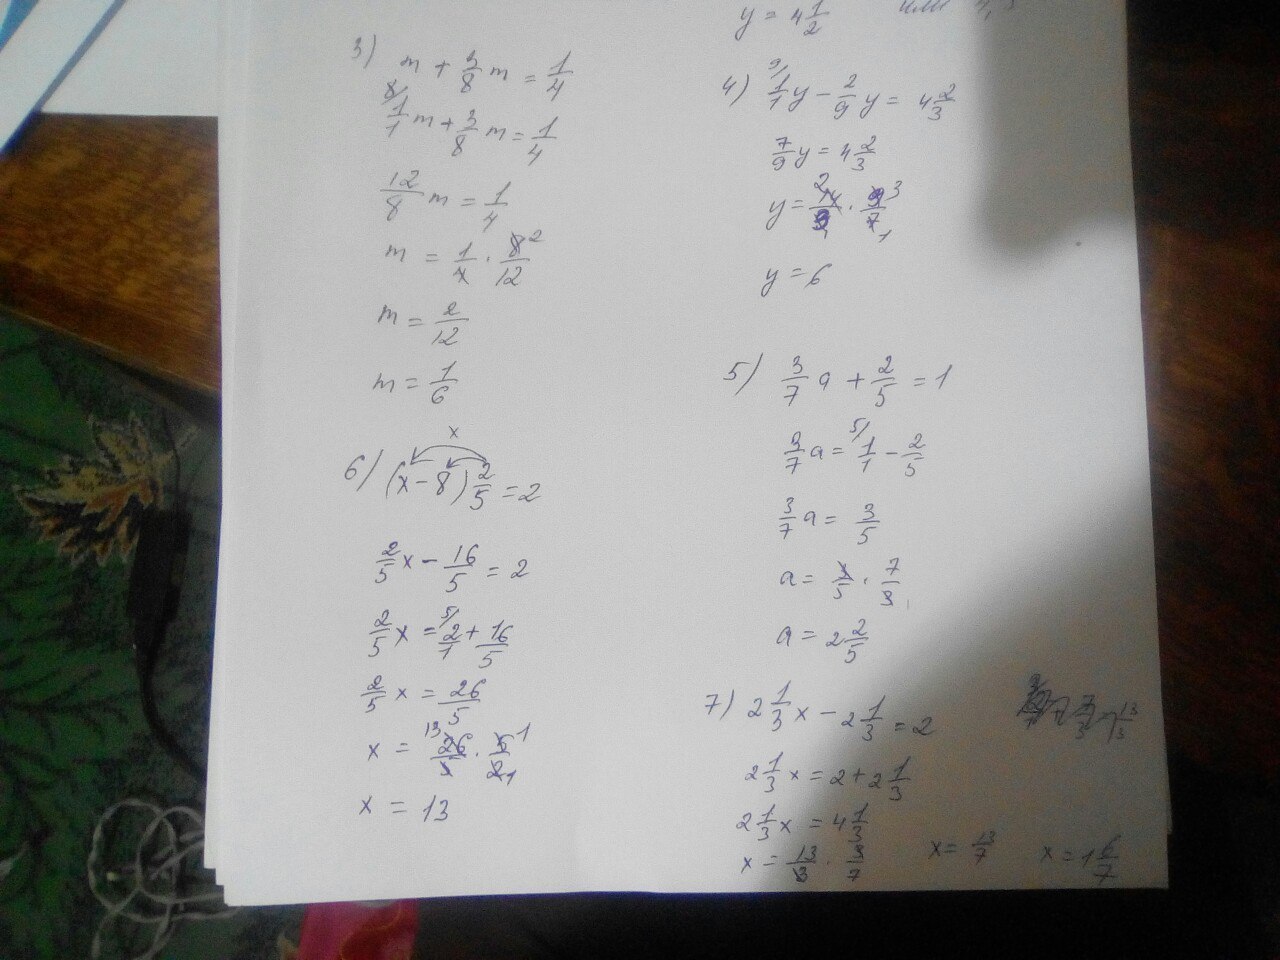 y = 4 1/2 или 4,
3) m + 3/8 m = 1/4
8/ 1/1 m + 3/8 m = 1/4
12/8 m = 1/4
m = 1/4 · 8/12 2
m = 2/12
m = 1/6
6) (x - 8) 2/5 = 2
x
2/5 x - 16/5 = 2
2/5 x = 5/ 2/1 + 16/5
2/5 x = 26/5
x = 13 26/5 · 5/2 1 1
x = 13
4) 9/ 1/1 y - 2/9 y = 4 2/3
7/9 y = 4 2/3
y = 2 14/3 1 · 9/7 3 1
y = 6
5) 3/7 a + 2/5 = 1
3/7 a = 5/ 1/1 - 2/5
3/7 a = 3/5
a = 3/5 · 7/3
a = 2 2/5
7) 2 1/3 x - 2 1/3 = 2
2 1/3 x = 2 + 2 1/3
2 1/3 x = 4 1/3
x = 13/3 · 3/7 x = 13/7 x = 1 6/7